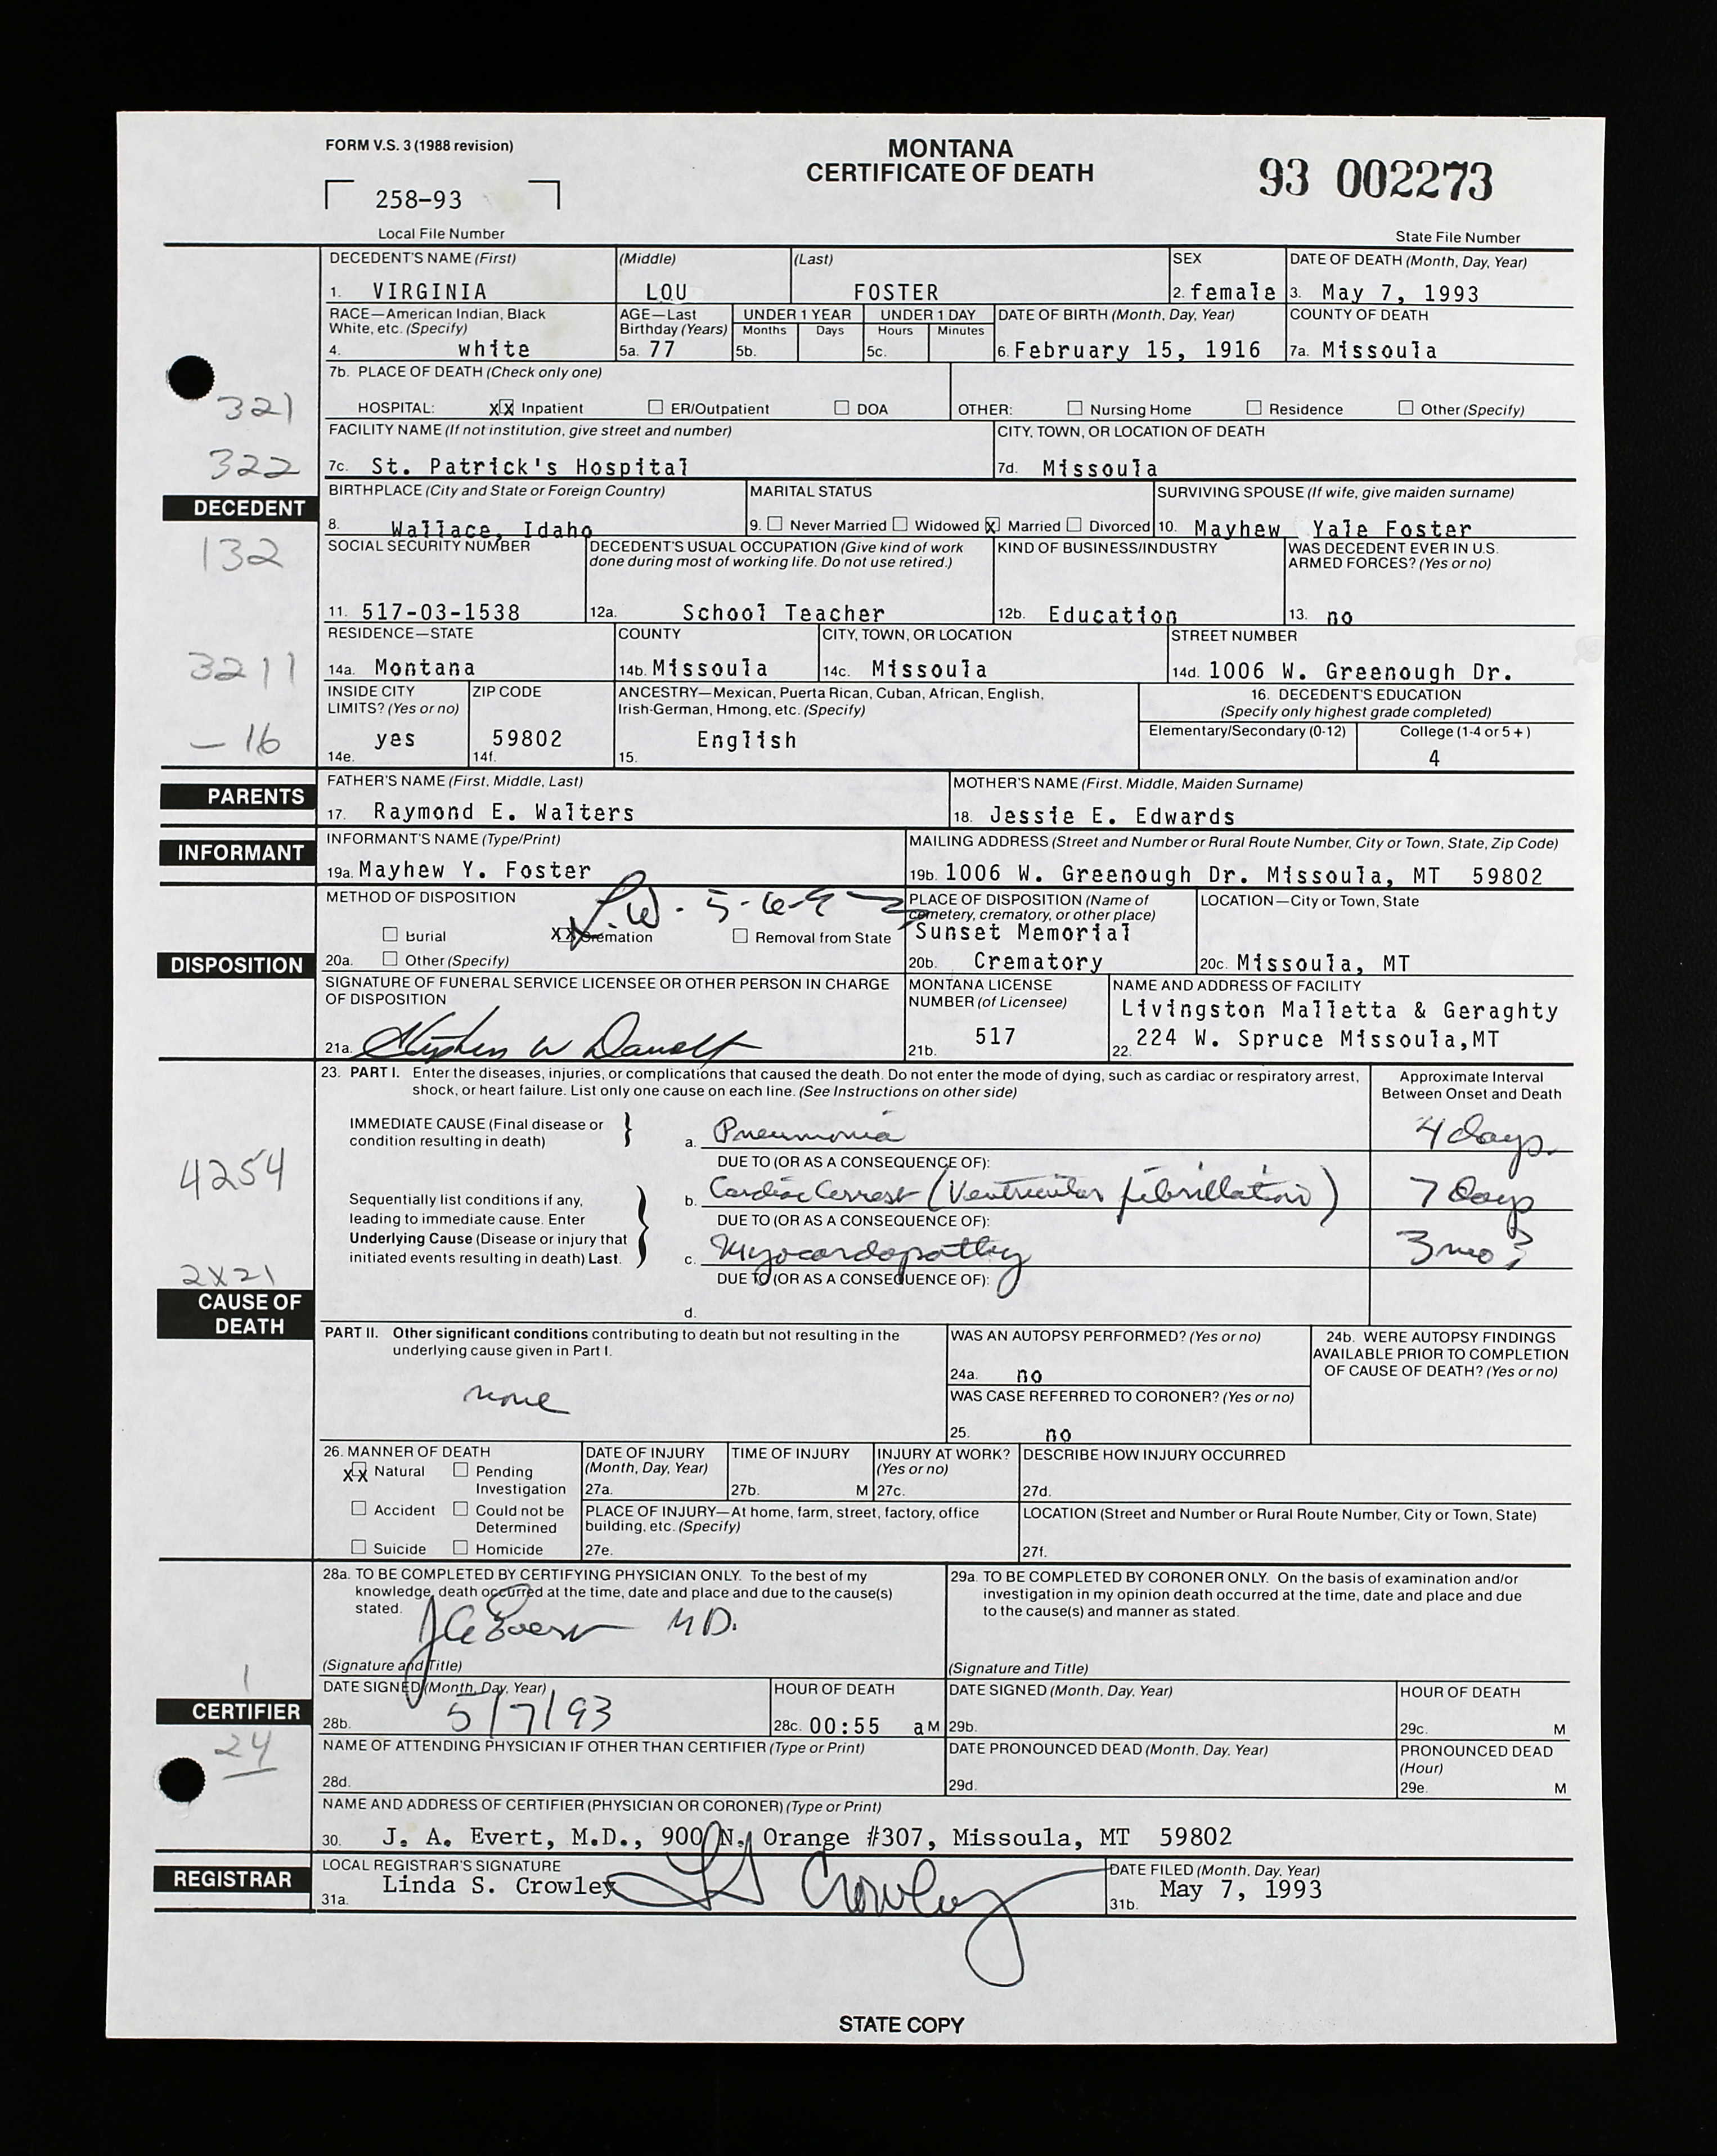 FORM V.S. 3 (1988 revision)
MONTANA
CERTIFICATE OF DEATH
93 002273
258-93
Local File Number
State File Number
DECEDENT'S NAME (First) (Middle) (Last) SEX DATE OF DEATH (Month, Day, Year)
1. VIRGINIA LOU FOSTER 2. female 3. May 7, 1993
RACE—American Indian, Black AGE—Last UNDER 1 YEAR UNDER 1 DAY DATE OF BIRTH (Month, Day, Year) COUNTY OF DEATH
White, etc. (Specify) Birthday (Years) Months Days Hours Minutes
4. white 5a. 77 5b. 5c. 6. February 15, 1916 7a. Missoula
7b. PLACE OF DEATH (Check only one)
321
HOSPITAL: XX Inpatient ER/Outpatient DOA OTHER: Nursing Home Residence Other (Specify)
FACILITY NAME (If not institution, give street and number) CITY, TOWN, OR LOCATION OF DEATH
322
7c. St. Patrick's Hospital 7d. Missoula
BIRTHPLACE (City and State or Foreign Country) MARITAL STATUS SURVIVING SPOUSE (If wife, give maiden surname)
DECEDENT
8. Wallace, Idaho 9. Never Married Widowed X Married Divorced 10. Mayhew Yale Foster
132
SOCIAL SECURITY NUMBER DECEDENT'S USUAL OCCUPATION (Give kind of work KIND OF BUSINESS/INDUSTRY WAS DECEDENT EVER IN U.S.
done during most of working life. Do not use retired.) ARMED FORCES? (Yes or no)
11. 517-03-1538 12a. School Teacher 12b. Education 13. no
RESIDENCE—STATE COUNTY CITY, TOWN, OR LOCATION STREET NUMBER
3211
14a. Montana 14b. Missoula 14c. Missoula 14d. 1006 W. Greenough Dr.
INSIDE CITY ZIP CODE ANCESTRY—Mexican, Puerta Rican, Cuban, African, English, 16. DECEDENT'S EDUCATION
LIMITS? (Yes or no) Irish-German, Hmong, etc. (Specify) (Specify only highest grade completed)
Elementary/Secondary (0-12) College (1-4 or 5+)
- 16
14e. yes 14f. 59802 15. English 4
PARENTS
FATHER'S NAME (First, Middle, Last) MOTHER'S NAME (First, Middle, Maiden Surname)
17. Raymond E. Walters 18. Jessie E. Edwards
INFORMANT
INFORMANT'S NAME (Type/Print) MAILING ADDRESS (Street and Number or Rural Route Number, City or Town, State, Zip Code)
19a. Mayhew Y. Foster 19b. 1006 W. Greenough Dr. Missoula, MT 59802
METHOD OF DISPOSITION PLACE OF DISPOSITION (Name of LOCATION—City or Town, State
cemetery, crematory, or other place)
Burial XX Cremation Removal from State Sunset Memorial
DISPOSITION
20a. Other (Specify) 20b. Crematory 20c. Missoula, MT
SIGNATURE OF FUNERAL SERVICE LICENSEE OR OTHER PERSON IN CHARGE MONTANA LICENSE NAME AND ADDRESS OF FACILITY
OF DISPOSITION NUMBER (of Licensee) Livingston Malletta & Geraghty
21a. Stephen W 21b. 517 22. 224 W. Spruce Missoula,MT
23. PART I. Enter the diseases, injuries, or complications that caused the death. Do not enter the mode of dying, such as cardiac or respiratory arrest, Approximate Interval
shock, or heart failure. List only one cause on each line. (See Instructions on other side) Between Onset and Death
IMMEDIATE CAUSE (Final disease or
condition resulting in death) a. Pneumonia 4 days
DUE TO (OR AS A CONSEQUENCE OF):
4254
Sequentially list conditions if any, b. Cardiac Arrest (Ventricular fibrillation) 7 days
leading to immediate cause. Enter DUE TO (OR AS A CONSEQUENCE OF):
Underlying Cause (Disease or injury that
initiated events resulting in death) Last. c. Myocardopathy 3 mo ?
DUE TO (OR AS A CONSEQUENCE OF):
2X21
CAUSE OF
DEATH
d.
PART II. Other significant conditions contributing to death but not resulting in the WAS AN AUTOPSY PERFORMED? (Yes or no) 24b. WERE AUTOPSY FINDINGS
underlying cause given in Part I. AVAILABLE PRIOR TO COMPLETION
24a. no OF CAUSE OF DEATH? (Yes or no)
none WAS CASE REFERRED TO CORONER? (Yes or no)
25. no
26. MANNER OF DEATH DATE OF INJURY TIME OF INJURY INJURY AT WORK? DESCRIBE HOW INJURY OCCURRED
XX Natural Pending (Month, Day, Year) (Yes or no)
Investigation 27a. 27b. M 27c. 27d.
Accident Could not be PLACE OF INJURY—At home, farm, street, factory, office LOCATION (Street and Number or Rural Route Number, City or Town, State)
Determined building, etc. (Specify)
Suicide Homicide 27e. 27f.
28a. TO BE COMPLETED BY CERTIFYING PHYSICIAN ONLY. To the best of my 29a. TO BE COMPLETED BY CORONER ONLY. On the basis of examination and/or
knowledge, death occurred at the time, date and place and due to the cause(s) investigation in my opinion death occurred at the time, date and place and due
stated. to the cause(s) and manner as stated.
J A Evert M.D.
(Signature and Title) (Signature and Title)
1
DATE SIGNED (Month, Day, Year) HOUR OF DEATH DATE SIGNED (Month, Day, Year) HOUR OF DEATH
CERTIFIER
28b. 5/7/93 28c. 00:55 aM 29b. 29c. M
24
NAME OF ATTENDING PHYSICIAN IF OTHER THAN CERTIFIER (Type or Print) DATE PRONOUNCED DEAD (Month, Day, Year) PRONOUNCED DEAD
(Hour)
28d. 29d. 29e. M
NAME AND ADDRESS OF CERTIFIER (PHYSICIAN OR CORONER) (Type or Print)
30. J. A. Evert, M.D., 900 N. Orange #307, Missoula, MT 59802
REGISTRAR
LOCAL REGISTRAR'S SIGNATURE DATE FILED (Month, Day, Year)
31a. Linda S. Crowley LS Crowley 31b. May 7, 1993
STATE COPY